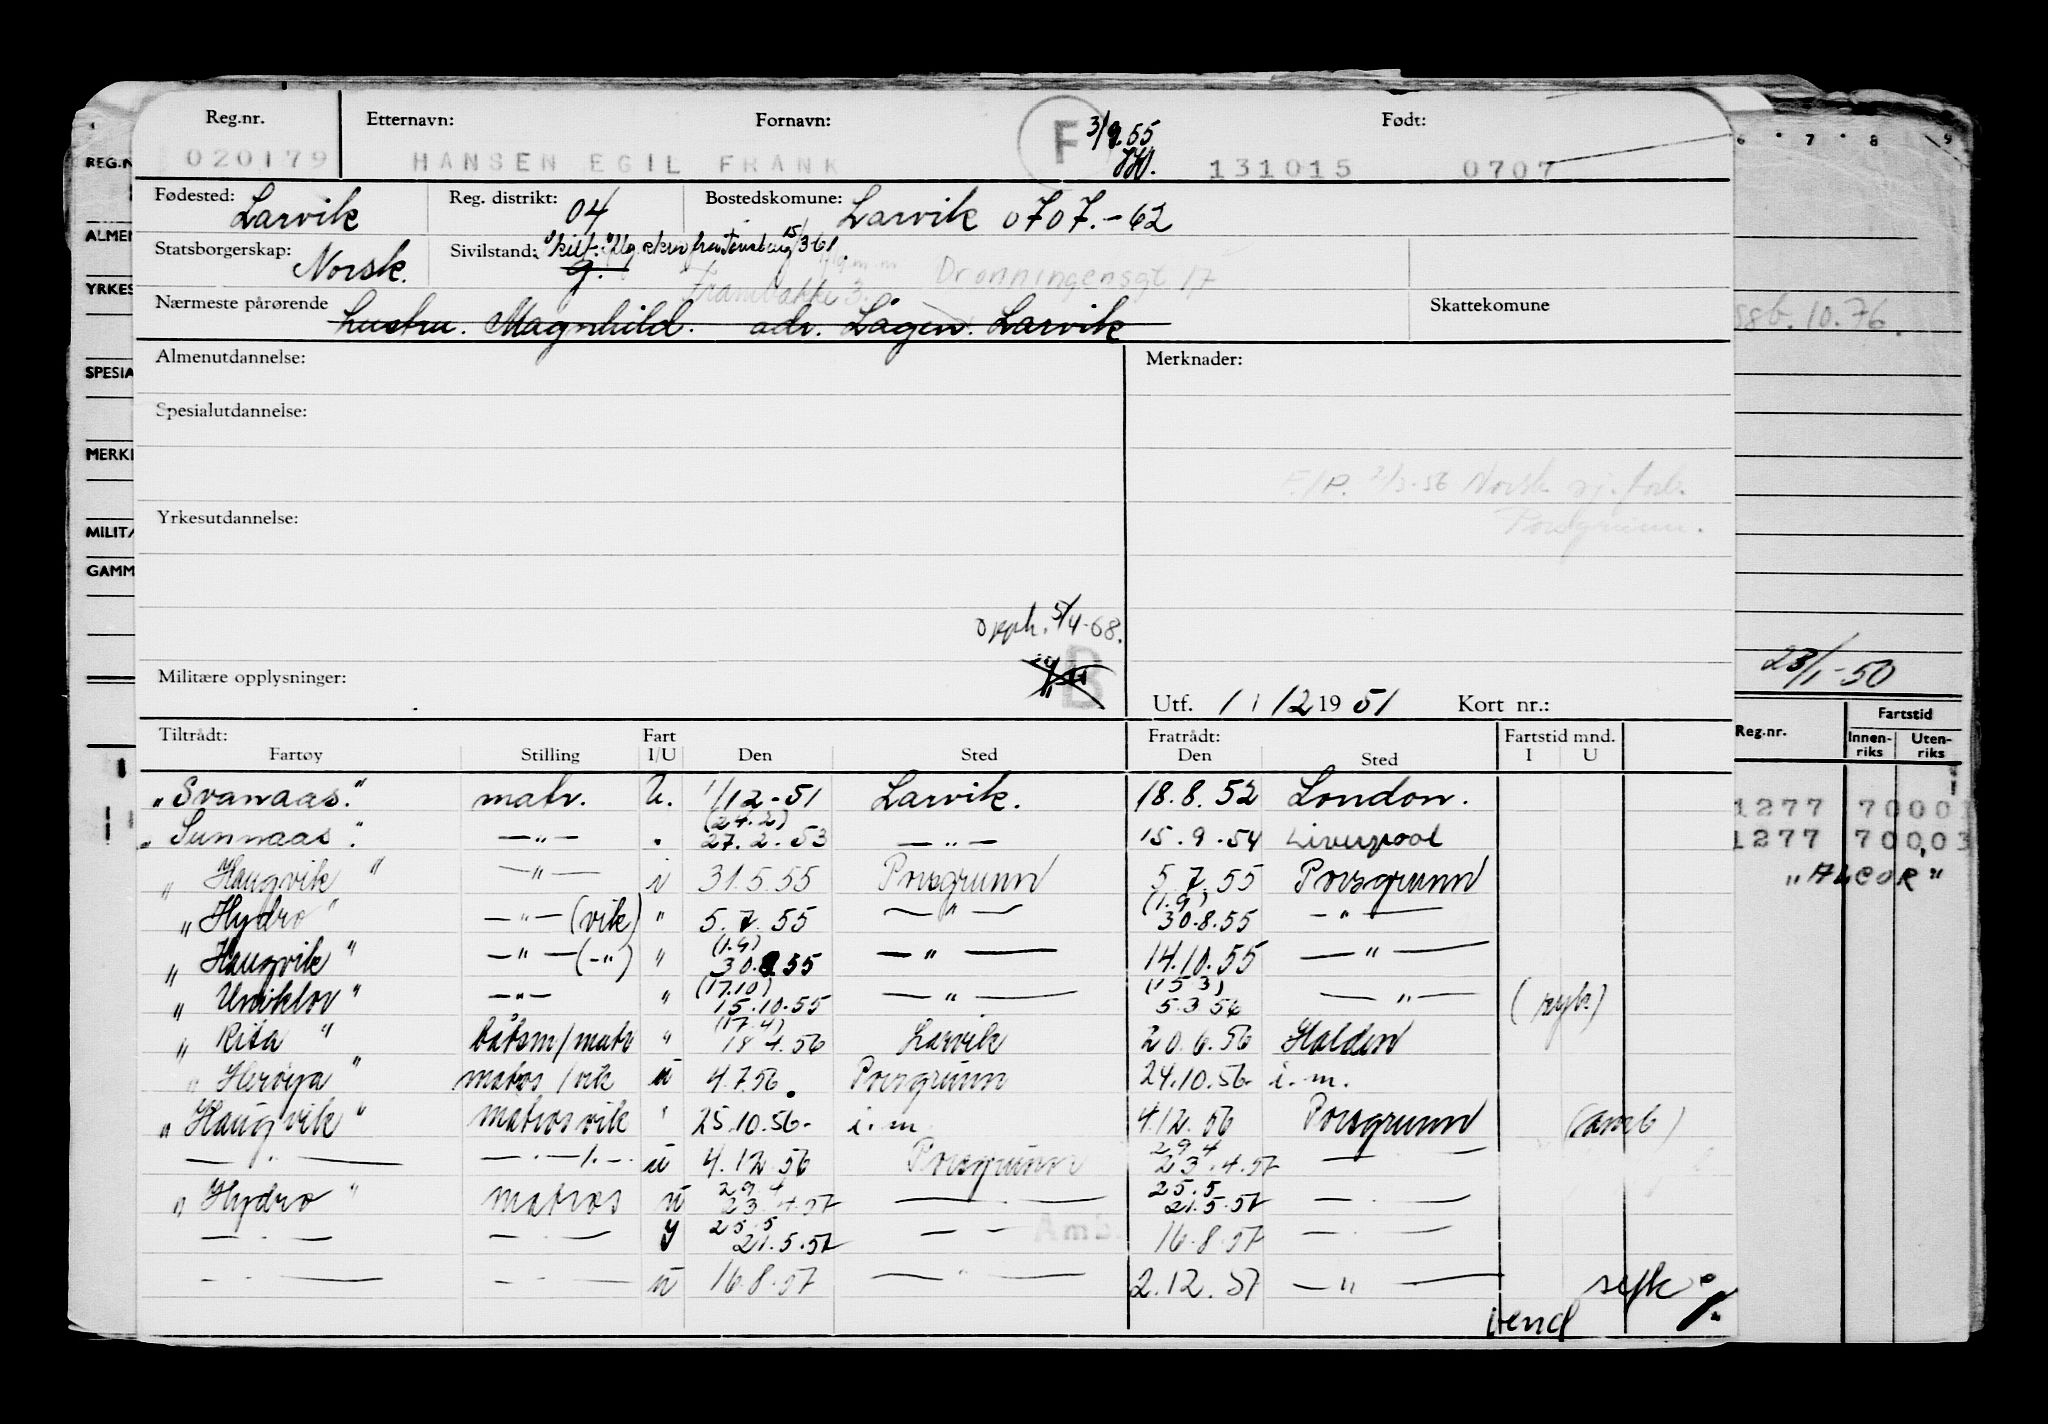 Reg.nr. Etternavn: Fornavn: F 3/9.55 Født:
020179 HANSEN EGIL FRANK 131015 0707
Fødested: Larvik Reg. distrikt: 04 Bostedskomune: Larvik 0707.-62
Statsborgerskap: Norsk. Sivilstand: g. 15/3 61. Dronningensgt 17
Frambakke 3.
Nærmeste pårørende hustru. Magnhild. adr. Lågen. Larvik Skattekomune
Almenutdannelse: Merknader:
Spesialutdannelse:
F/P. Norsk sj. forb.
Porsgrunn.
Yrkesutdannelse:
opph. 5/4-68.
B
Militære opplysninger: Utf. 1/12 19 51 Kort nr.:
Tiltrådt: Fart Fratrådt: Fartstid mnd.
Fartøy Stilling I/U Den Sted Den Sted I U
"Svanaas." matr. U. 1/12-51 Larvik. 18.8.52 London.
(24.2)
"Sunnaas". —"— " 27.2.53 —"— 15.9.54 Liverpool
"Haugvik" —"— i 31.5.55 Porsgrunn 5.7.55 Porsgrunn
(1.9)
"Hydro" —"—(vik) " 5.7.55 —"— 30.8.55 —"—
(1.9)
"Haugvik" —"—(-"-) " 30.8.55 —"— 14.10.55 —"—
(17.10) (15 3)
" " —"— " 15.10.55 —"— 5.3 56 —"—
(17.4)
"Rita" båtsm/matr " 18 4.56 Larvik 20.6.56 Halden
"Herøya" matros/vik u 4.7.56. Porsgrunn 24.10.56- i.m.
"Haugvik" matros vik " 25.10.56- i.m. 4.12.56 Porsgrunn (amb)
29 4
—"— —"—/-"- u 4.12.56 Porsgrunn 23.4.57 —"—
29 4 25.5
"Hydro" matros u 23.4.57 — 21.5.57 —"—
25.5
—"— —"— Y 21.5.57 —"— Amb. 16.8.57 —"—
—"— —"— u 16.8.57 —"— 2.12.57 —"— syk
vend
REG.N
ALMEN
YRKES
SPESIA
MERKI
MILITÆ
GAMM
6 7 8 9
ssb. 10.76.
23/1-50
Reg.nr. Fartstid
Innen-riks Uten-riks
1277 70001
1277 70003
"ALCOR"